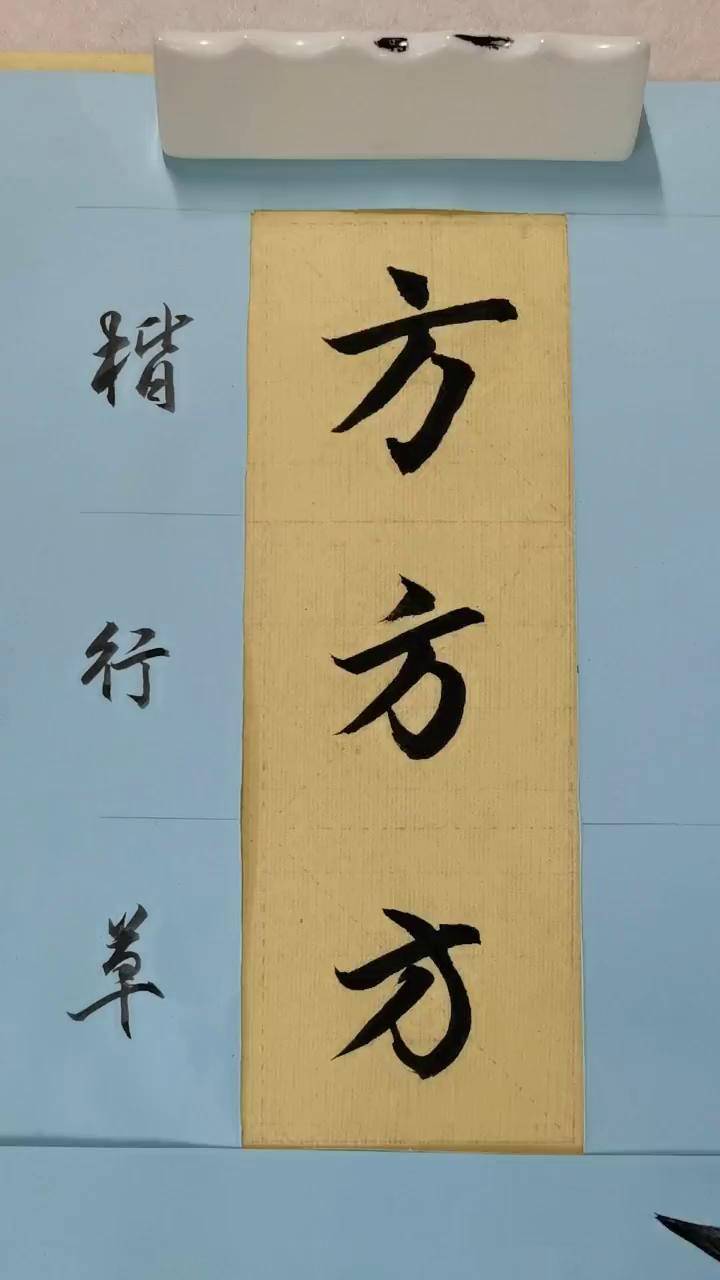 楷 方
行 方
草 方